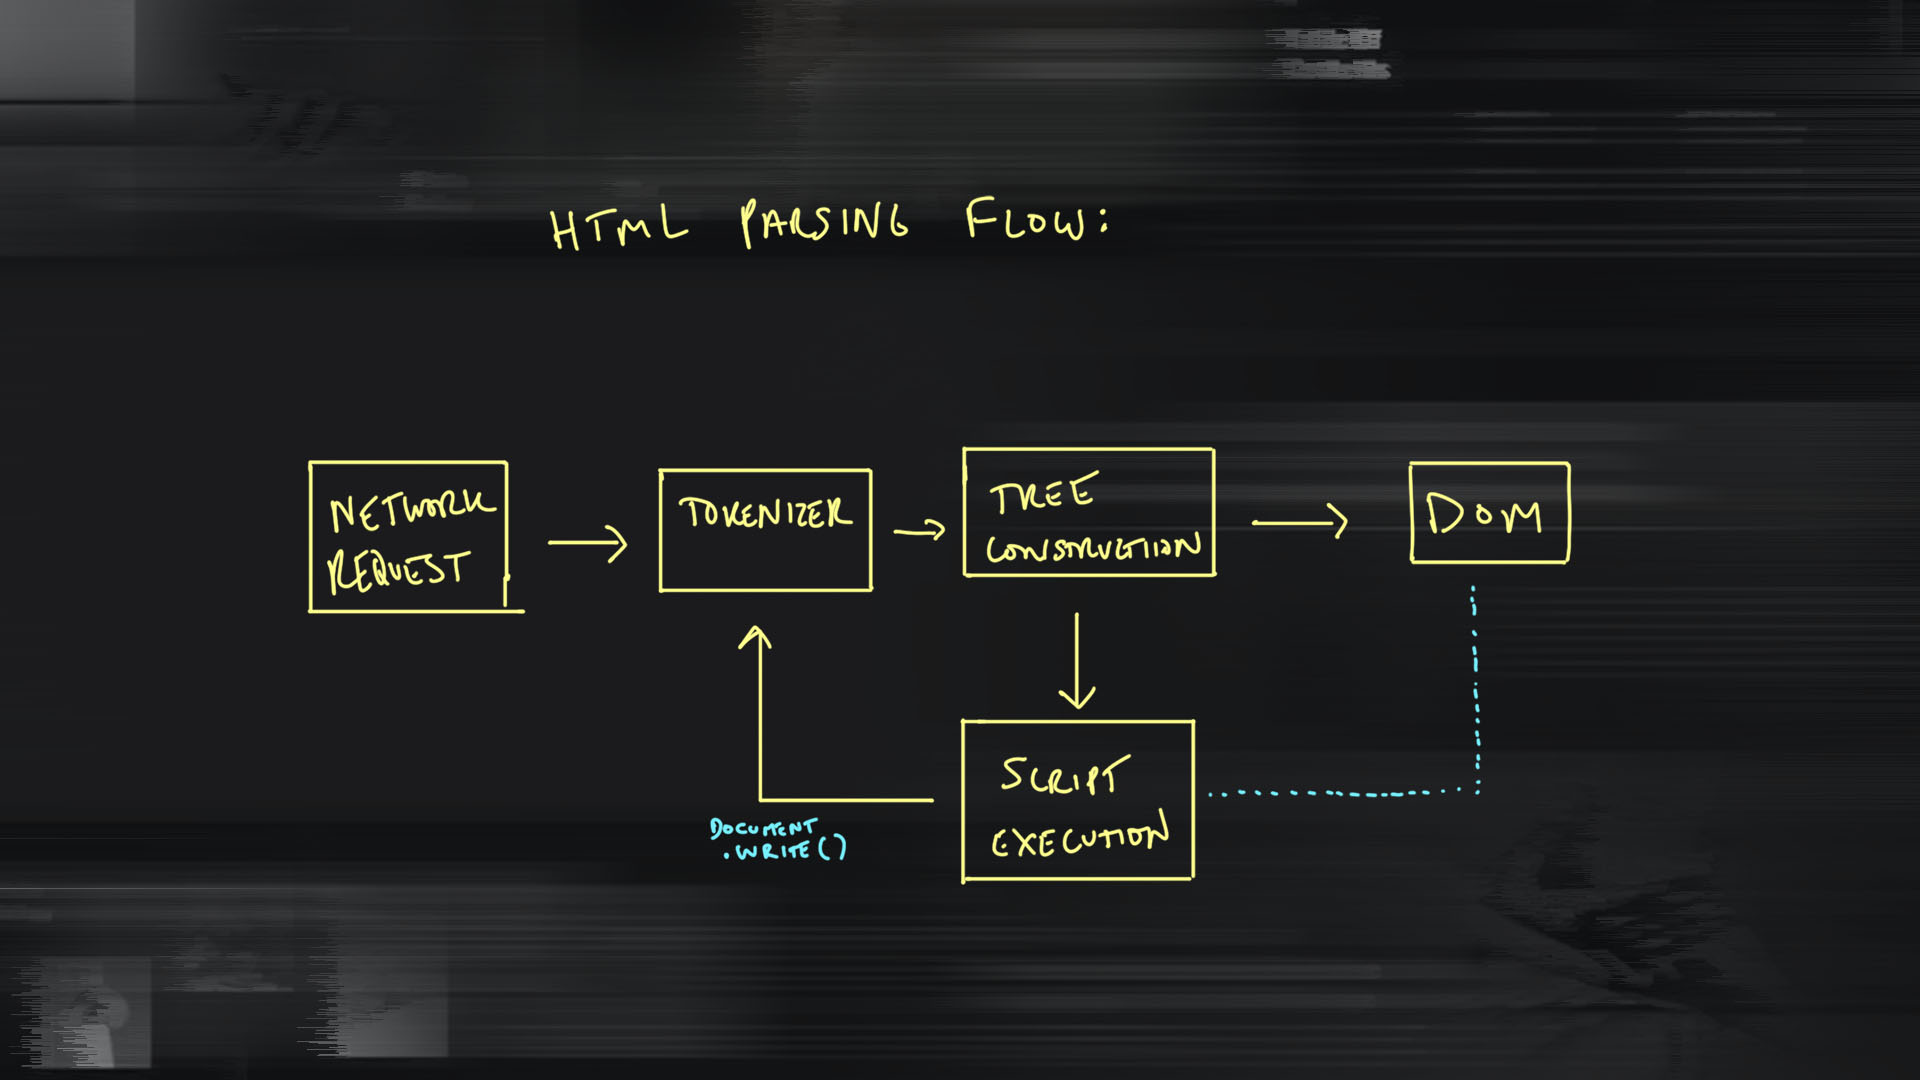 HTML PARSING FLOW:
NETWORK
REQUEST
TOKENIZER
TREE
CONSTRUCTION
DOM
SCRIPT
EXECUTION
DOCUMENT
.WRITE()